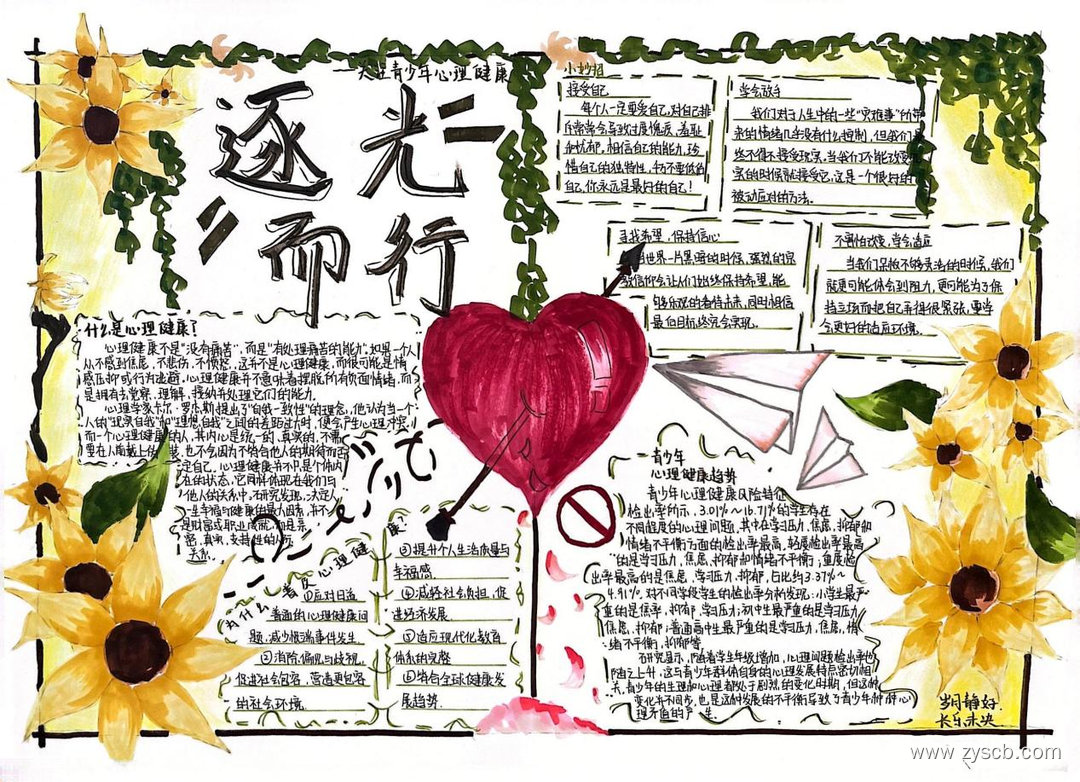 逐光
而行
关注青少年心理健康
什么是心理健康?
心理健康不是“没有痛苦”,而是“有处理痛苦的能力”,如果一个人
从不感到焦虑、不悲伤、不愤怒,这并不是心理健康,而很可能是情
感压抑或行为逃避,心理健康并不意味着摆脱所有负面情绪,而
是拥有去觉察、理解、接纳并处理它们的能力。
心理学家卡尔·罗杰斯提出了“自我一致性”的理念,他认为当一个
人的“现实自我”和“理想自我”之间的差距过大时,便会产生心理冲突
而一个心理健康的人,其内心是统一的、真实的,不需
要在人前戴上伪装,也不会因为不符合他人的期待而否
定自己。心理健康并不只是个体内
在的状态,它同样体现在我们与
他人的关系中。研究发现,决定人
一生幸福与健康的最大因素,并不
是财富或职业成就,而是亲
密、真实、支持性的人际
关系。
为什么普及心理健康?
①应对日益
普遍的心理健康问
题,减少极端事件发生
②消除偏见与歧视,
促进社会包容,营造更包容
的社会环境
③提升个人生活质量与
幸福感
④减轻社会负担,促
进经济发展
⑤适应现代化教育
体系的完整
⑥符合全球健康发
展趋势.
小妙招
接受自己
每个人一定要爱自己,对自己排
斥常常会导致过度愧疚、羞耻
和忧郁,相信自己的能力,珍
惜自己的独特性,千万不要低估
自己,你永远是最好的自己!
学会放手
我们对于人生中的一些“灾难事”所带
来的情绪几乎没有什么控制,但我们最
终不得不接受现实,当我们不能改变现
实的时候就接受它,这是一个很好的
被动应对的方法。
寻找希望,保持信心
当世界一片黑暗的时候,强烈的宗
教信仰会让人们始终保持希望,能
够乐观的看待未来,同时相信
最佳目标终究会实现。
不害怕改变,学会适应
当我们思想不够灵活的时候,我们
就更可能体会到阻力,更可能为了保
持立场而把自己弄得很紧张,要学
会更好的适应环境。
青少年
心理健康趋势
青少年心理健康风险特征
检出率所示,3.01%~16.71%的学生存在
不同程度的心理问题,其中在学习压力、焦虑、抑郁和
情绪不平衡方面的检出率最高,轻度检出率最高
的是学习压力、焦虑、抑郁和情绪不平衡;重度检
出率最高的是焦虑、学习压力、抑郁,占比约3.37%~
4.91%.对不同学段学生的检出率分析发现:小学生最严
重的是焦虑、抑郁、学习压力;初中生最严重的是学习压力、
焦虑、抑郁;普通高中生最严重的是学习压力、焦虑、情
绪不平衡、抑郁等
研究显示,随着学生年级增加,心理问题检出率也
随之上升,这与青少年群体自身的心理发展特点密切相
关,青少年的生理和心理者处于剧烈的变化时期,但这种
变化并不同步,也是这种发展的不平衡导致了青少年种种心
理矛盾的产生.
岁月静好.
长乐未央
www.zyscb.com